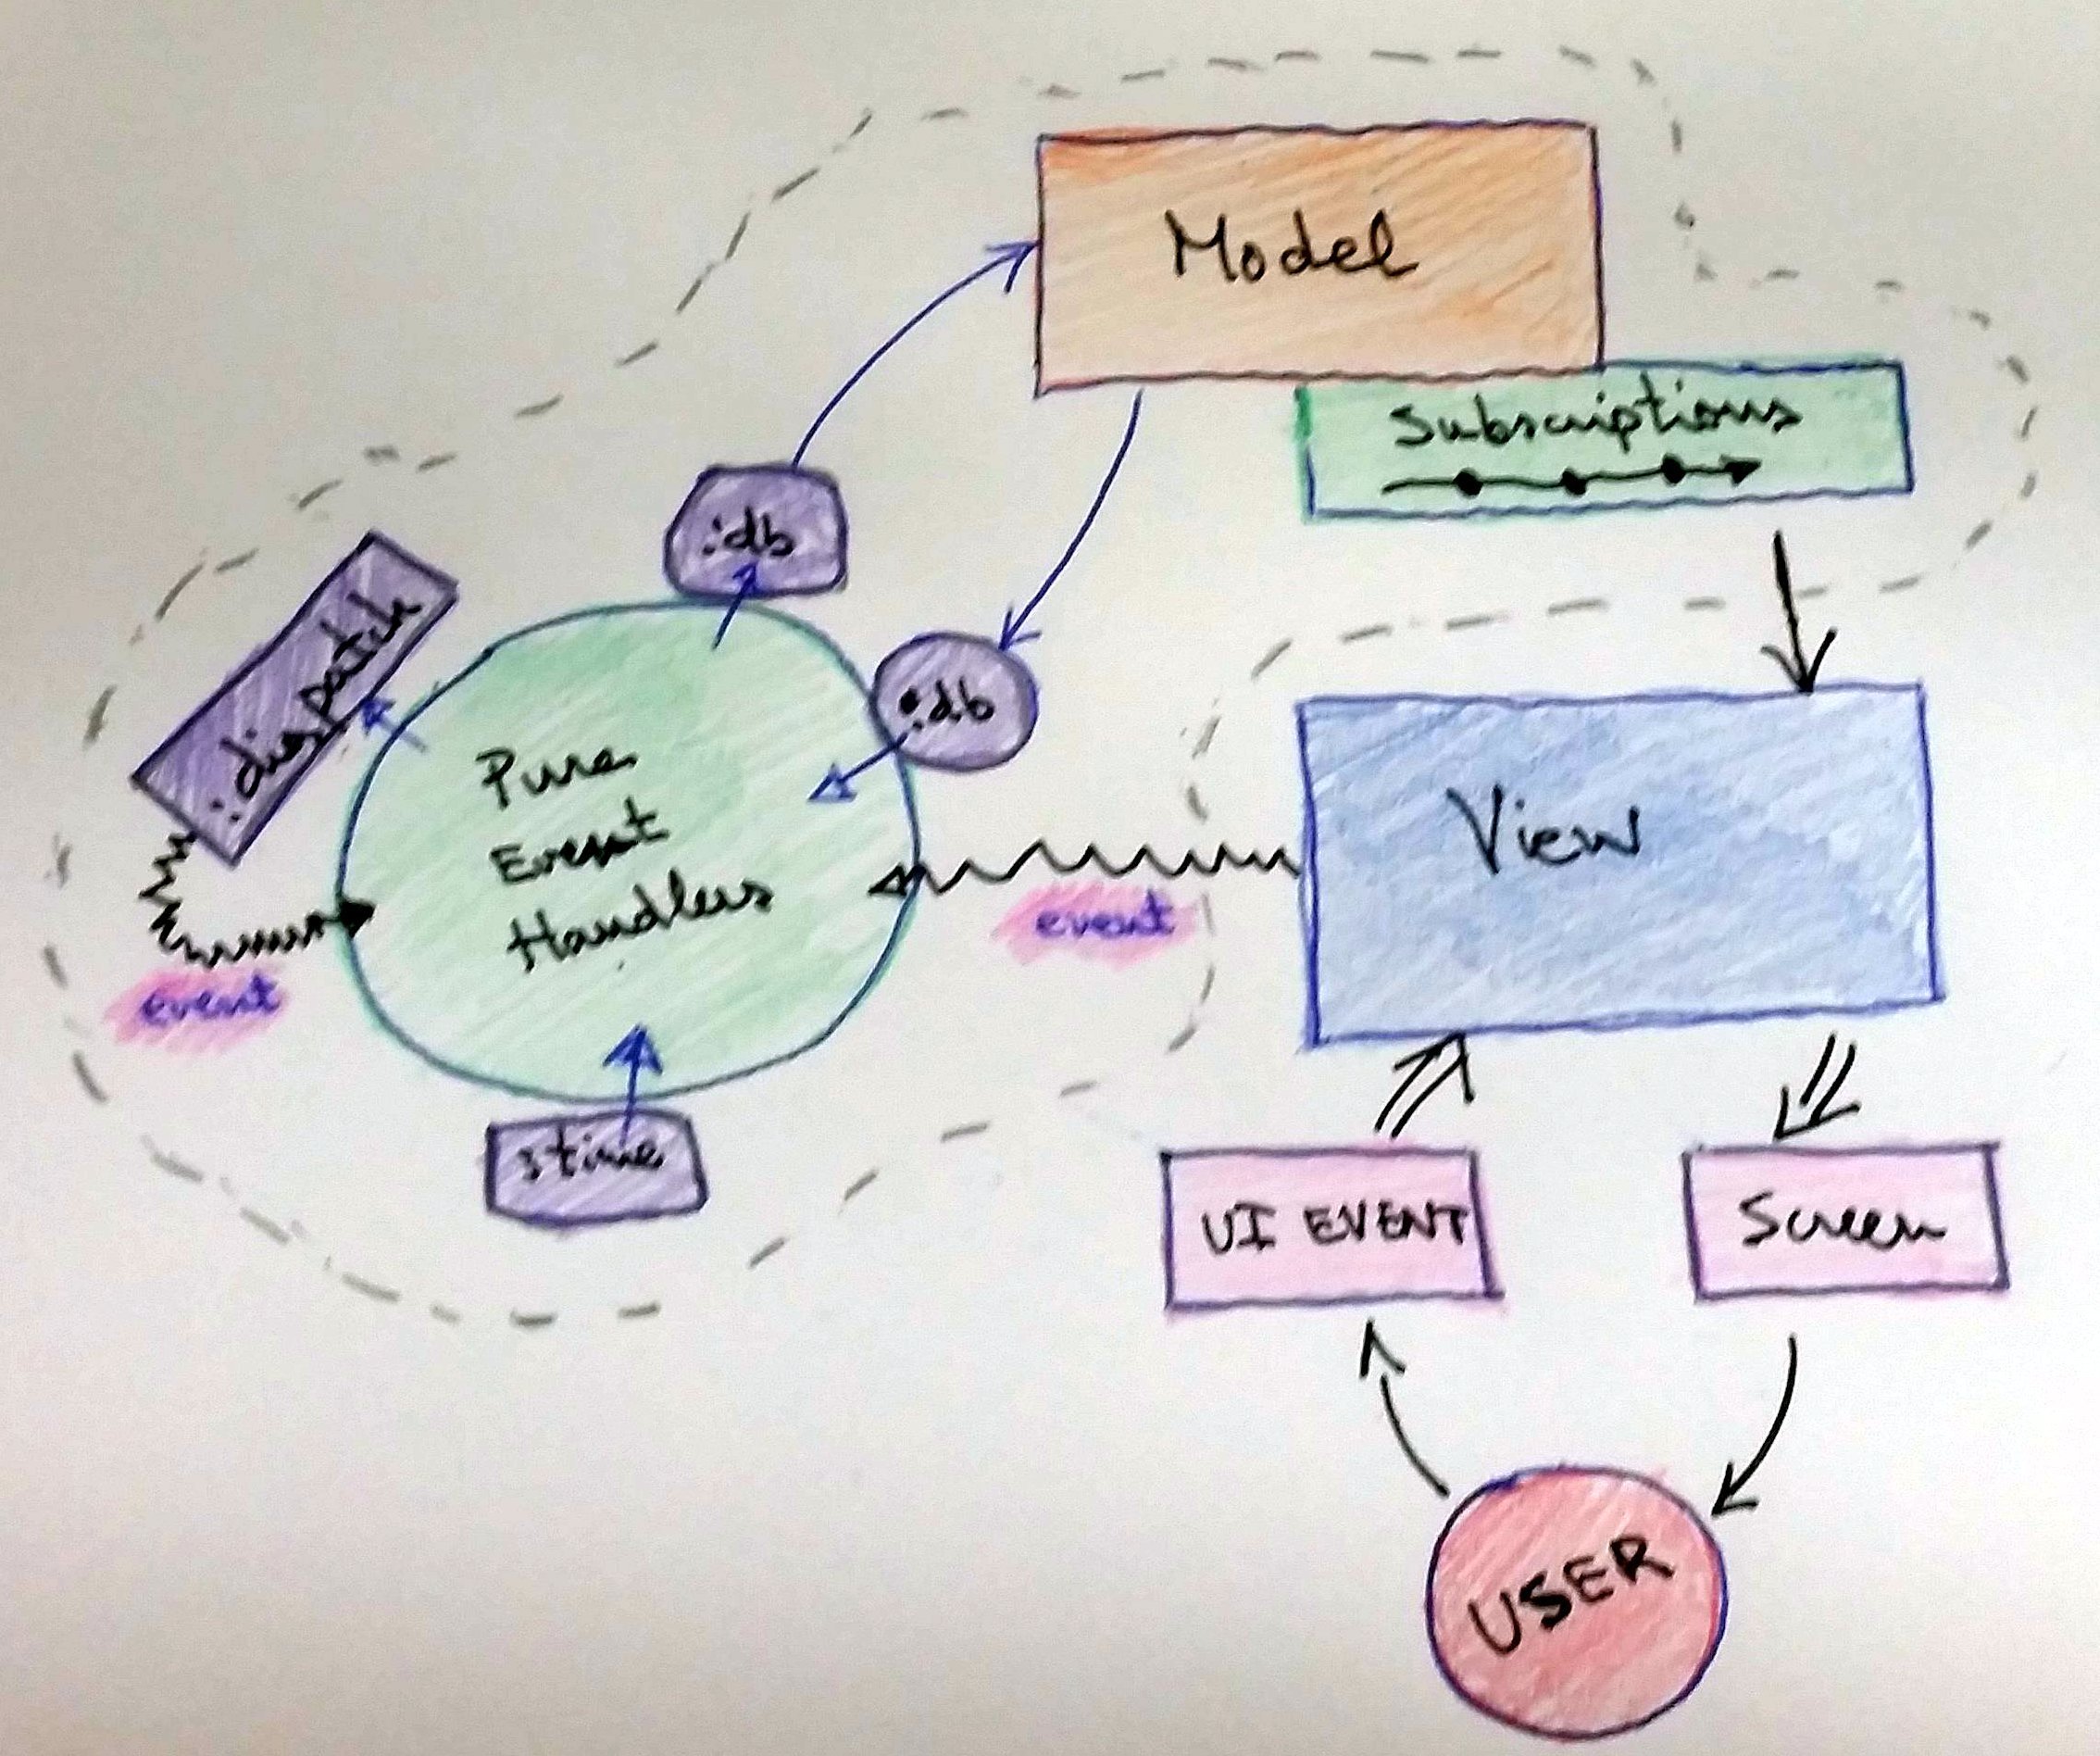 Model
Subscriptions
:db
:db
:dispatch
Pure
Event
Handlers
View
event
event
:time
UI EVENT
Screen
USER